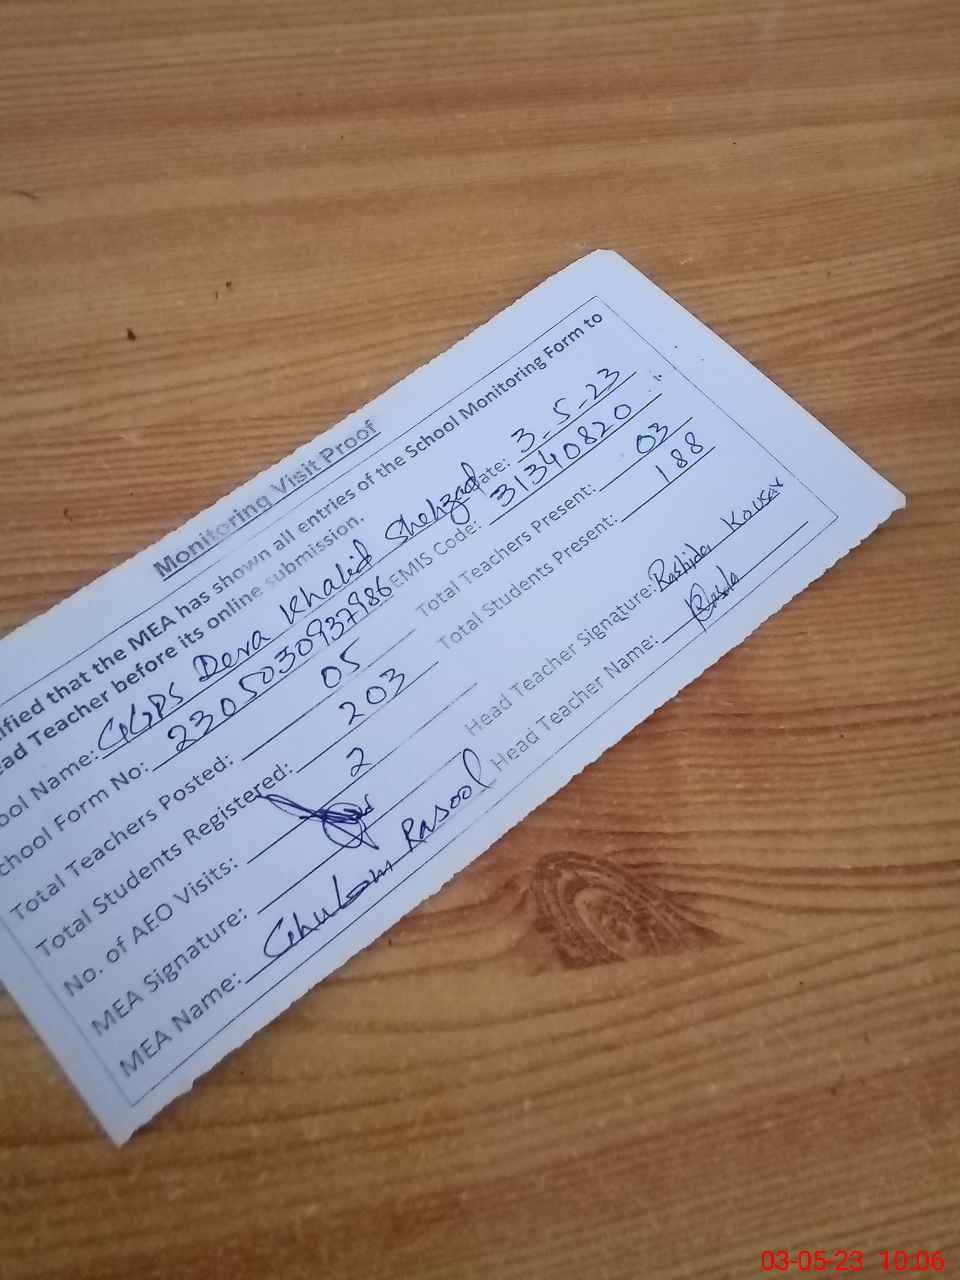 Monitoring Visit Proof
ified that the MEA has shown all entries of the School Monitoring Form to
ead Teacher before its online submission.
ool Name: GGPS Dera Khalid Shehzad ate: 3-5-23
chool Form No: 2305030937986 EMIS Code: 31340820
Total Teachers Posted: 05 Total Teachers Present: 03
Total Students Registered: 203 Total Students Present: 188
No. of AEO Visits: 2
MEA Signature: Head Teacher Signature: Rashida Kousar
MEA Name: Ghulam Rasool Head Teacher Name:
03-05-23 10:06